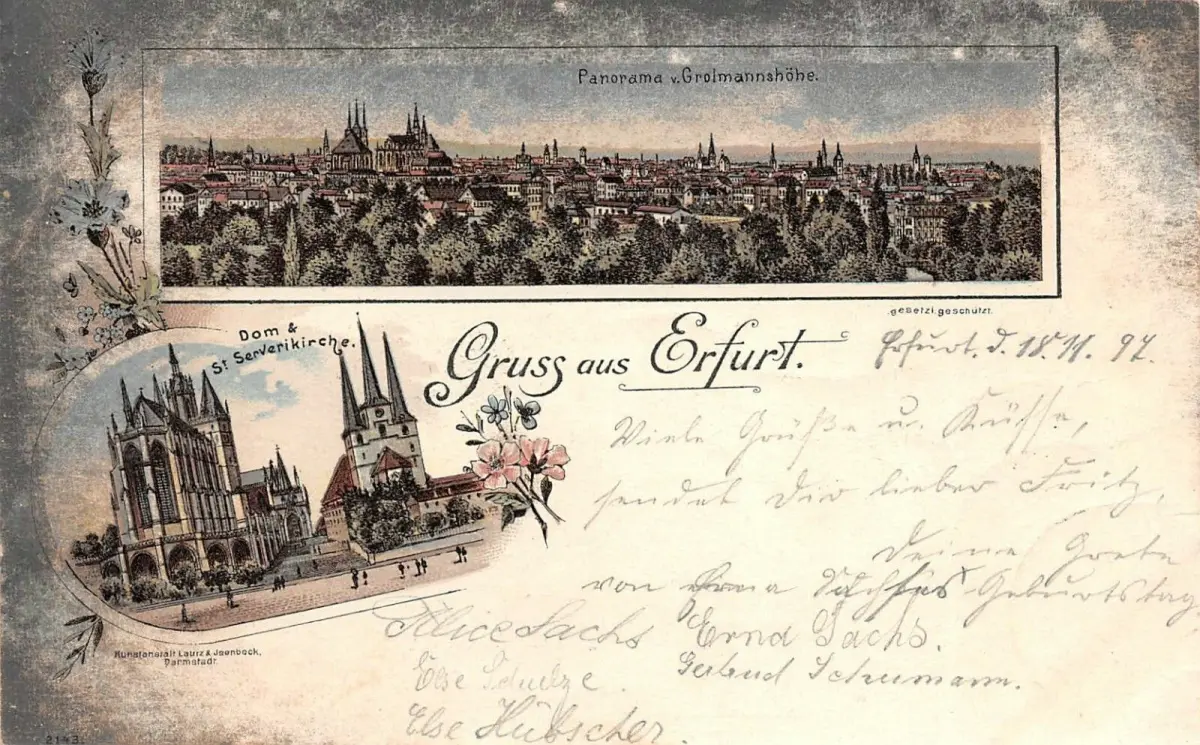 Panorama v. Grolmannshöhe.
gesetzl. geschützt.
Dom &
St Serverikirche.
Gruss aus Erfurt.
Erfurt, d. 18.11.97.
Viele Grüße u. Küsse,
sendet Dir lieber Fritz,
Deine Grete
von Erna Sachs's Geburtstag
Alice Sachs Erna Sachs.
Else Schulze. Gertrud Schumann.
Else Hübscher.
Kunstanstalt Lautz & Jsenbeck,
Darmstadt.
2143.